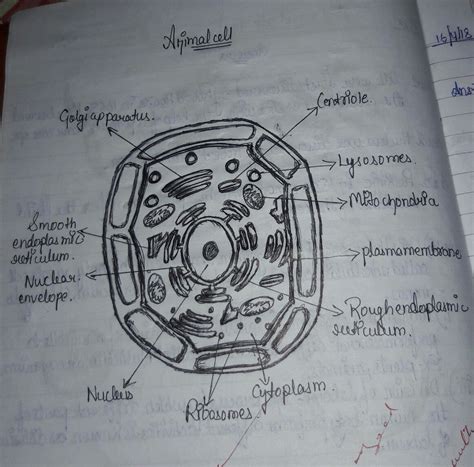 Animal cell
16/4/18
Ans:
Golgi apparatus.
Centriole.
Lysosomes.
Mitochondria
Smooth
endoplasmic
reticulum.
plasmamembrane
Nuclear
envelope.
Rough endoplasmic
reticulum.
Nucleus
Ribosomes.
Cytoplasm.